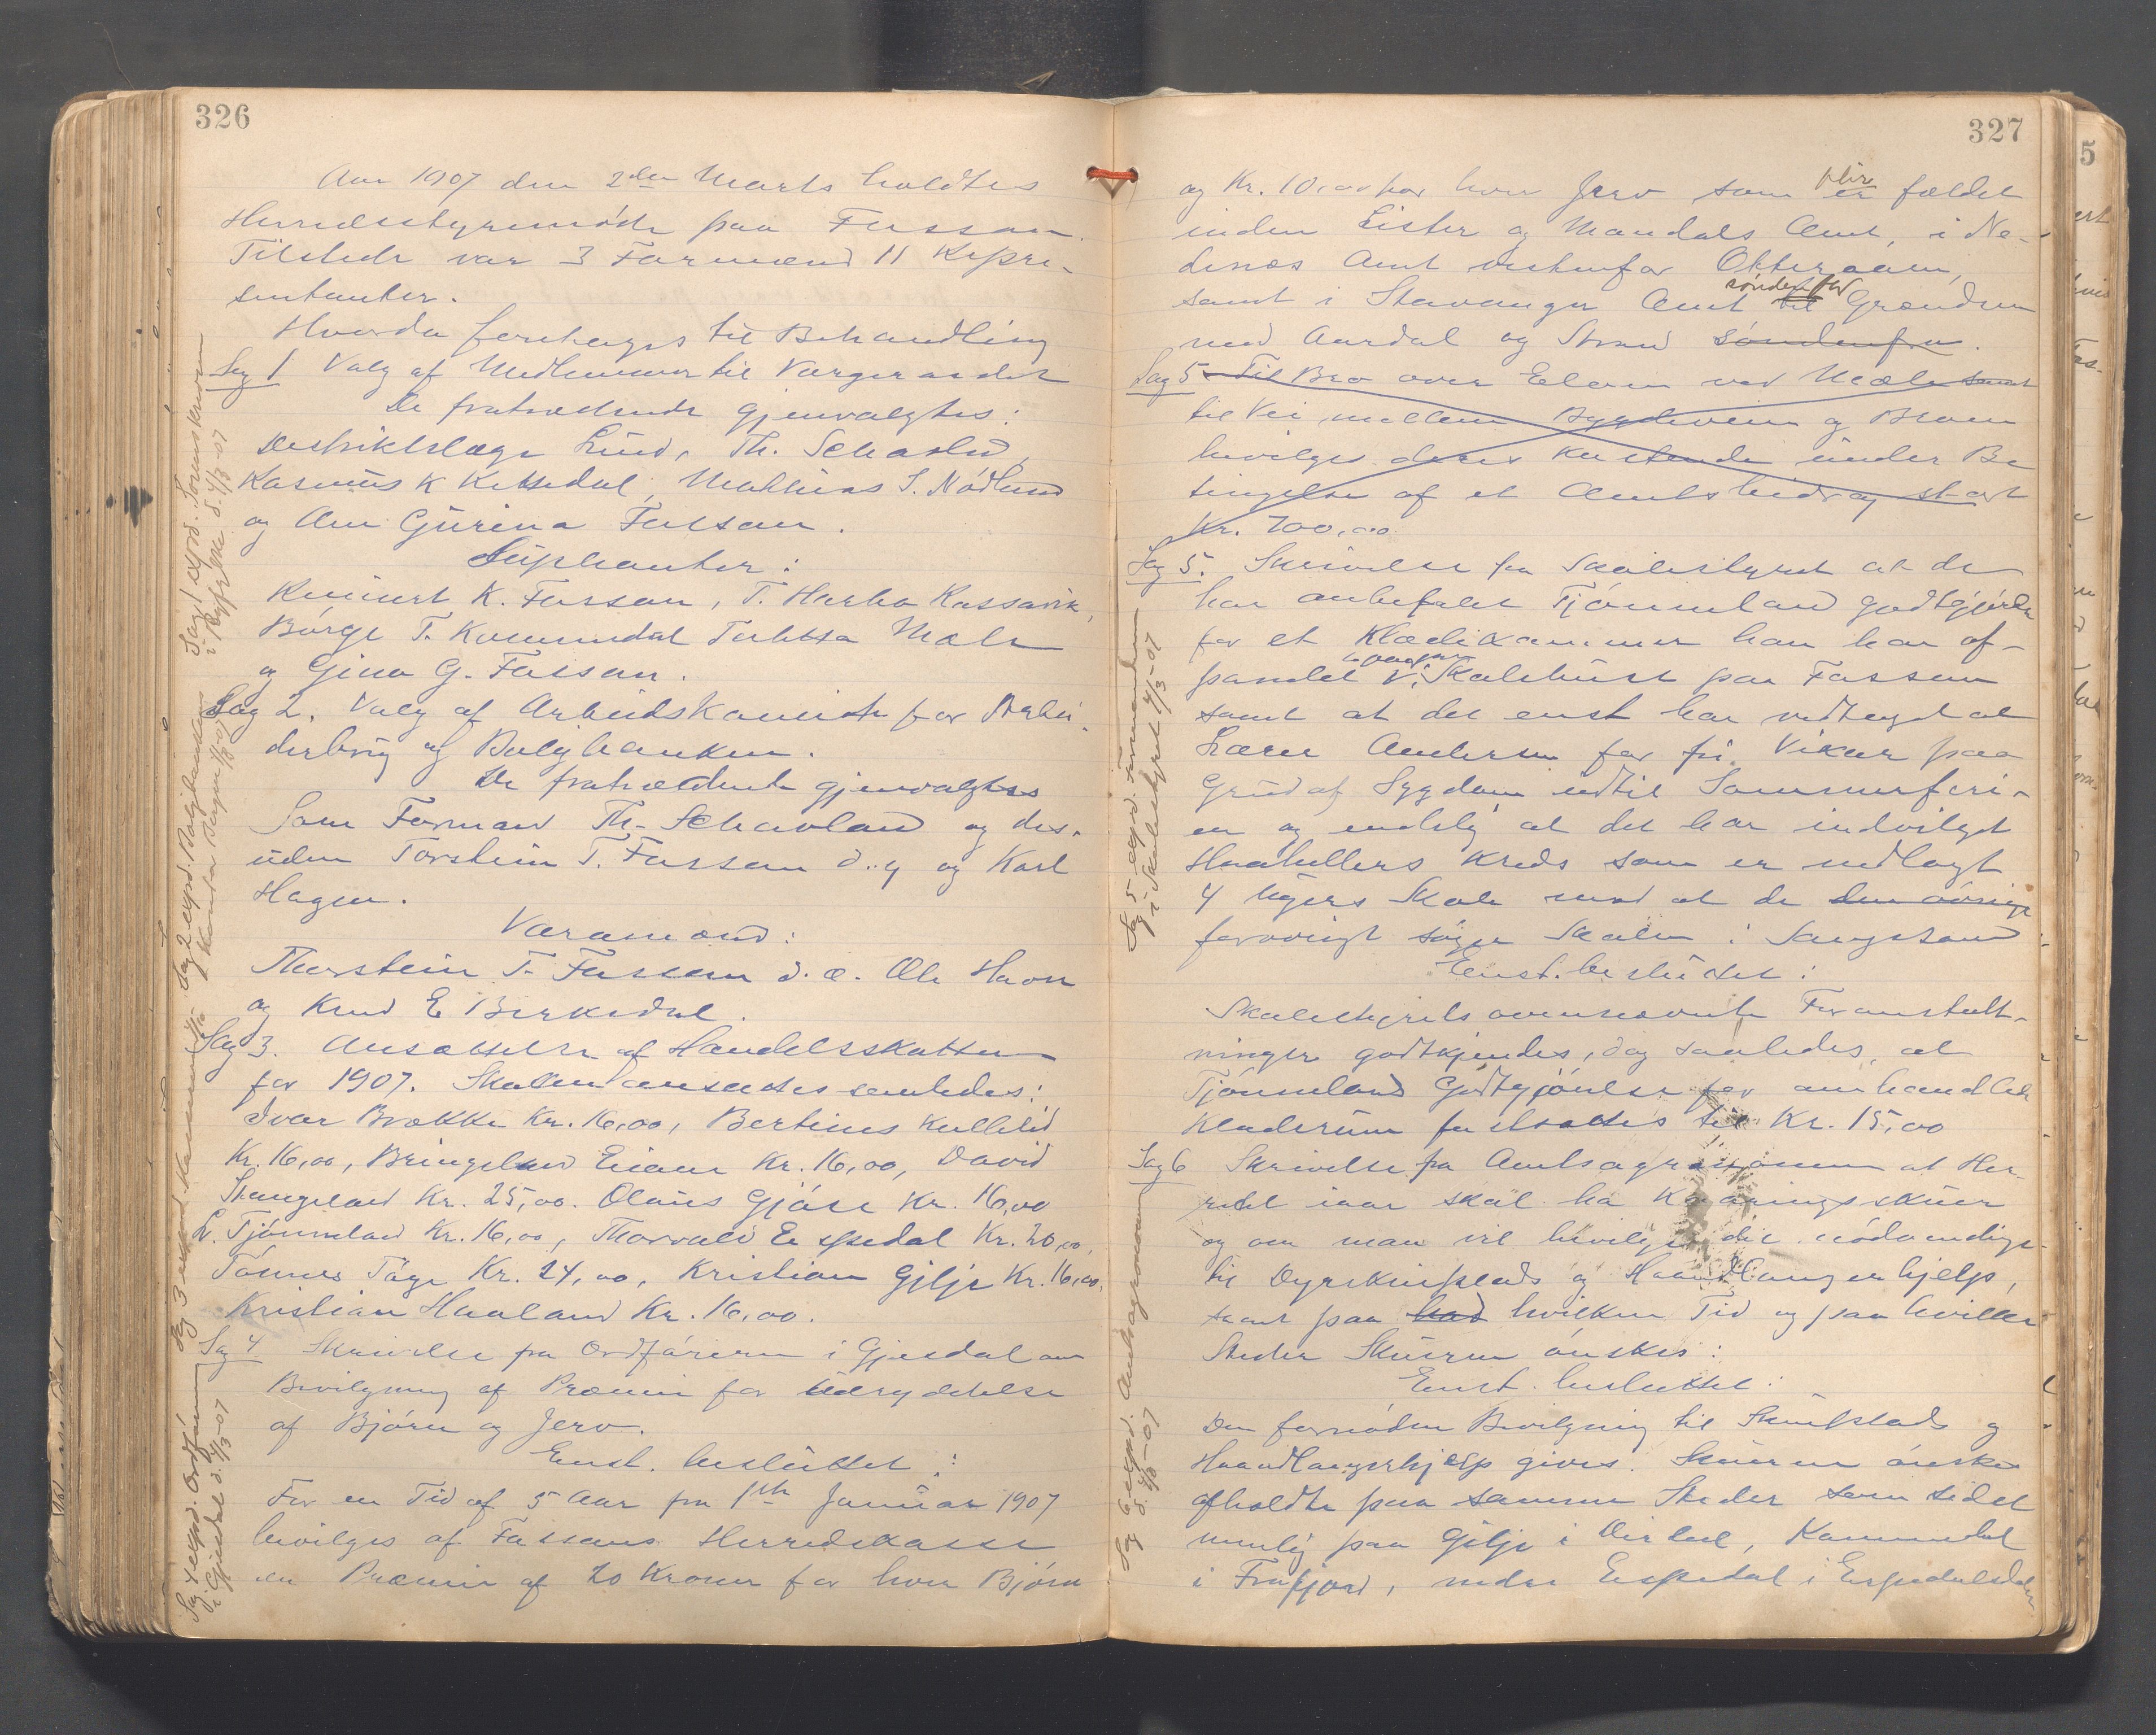 326
Aar 1907 den 2den Marts holdtes
Herredsstyremøde paa Fossan.
Tilstede var 3 Formænd 11 Repræ-
sentanter.
Hvorda foretoges til Behandling
Sag 1 Valg af Medlemmer til Værgeraadet
De fratrædende gjenvalgtes:
Distriktslæge Lund, Th. Scha
Rasmus K Kettedal, Mathias S. Nödland
og Ane Gurina Fossan.
Suplianter:
K. Fossan, T. Rossavik,
Börge T. Kommedal
og Gina G. Fossan.
Sag 2. Valg af Arbeidskomite for Arbei-
derbrug og Boligbanken.
De fratrædende gjenvalgtes
Som Formand Th. Schavland og des-
uden Torstein T. Fossan d.y og Karl
Hagen.
Varamænd:
Thorstein T. Fossan d. æ. Ole Haavn
og Knud E Birkedal.
Sag 3. Ansættelse af Handelsskatten
for 1907. Skatten ansattes saaledes:
Ivar Brække Kr. 16,00, Bertinus Kullelid
Kr. 16,00, Bringeland Eiane Kr. 16,00, David
Stangeland Kr. 25,00. Olaus Gjöse Kr. 16,00
L. Tjönneland Kr. 16,00, Thorvald Espedal Kr. 20,00,
Tönnes Kr. 24,00, Kristian Gilje Kr. 16,00,
Kristian Haaland Kr. 16,00.
Sag 4 Skrivelse fra Ordføreren i Gjesdal om
Bevilgning af Præmie for Udryddelse
af Bjørn og Jerv.
Enst. besluttet:
For en Tid af 5 Aar fra 1ste Januar 1907
bevilges af Fossans Herredskasse
en Præmie af 20 Kroner for hver Bjørn
Sag 1 expd. Sorenskriveren
i Ryfylke d. 4/3 07
Sag 2 expd. Boligbanken
Sag 4 expd. Ordføreren
i Gjesdal d. 4/3-07
327
og Kr. 10,00 for hver Jerv som er bliver fældet
inden Lister og Mandals Amt, i Ne-
denæs Amt vestenfor Otteraaen,
samt i Stavanger Amt til söndenfor Grændsen
med Aardal og Strand söndenfra.
Sag 5 Til Bro over Elven ved Mæle samt
til Vei mellem Bygdeveien og Broen
bevilges deres Kostende under Be
tingelse af et Amtsbidrag stort
Kr. 700,00
Sag 5. Skrivelse fra Skolestyret at de
har anbefalet Tjönneland godtgjörelse
for et Klædekammer han har af-
pandet v. Skolehuset paa Fossan
samt at det enst har vedtaget at
Lærer Andersen faar fri Vikar paa
Grund af Sygdom indtil Sommerferi-
en og endelig at det har indvilget
Haahellers Kreds som er nedlagt
4 Ugers Skole mod at de den övrige
forövrigt söger Skolen i Sangesand
Enst. besluttet:
Skolestyrets ovennævnte Foranstalt-
ninger godkjendes, dog saaledes, at
Tjönneland Godtgjörelse for omhandlede
Klæderum fastsættes til Kr. 15,00
Sag 6 Skrivelse fra Amtsagronomen at Her-
redet iaar skal ha Kaaringsskuer
og om man vil bevilge det nödvendige
til Dyrskueplads og Haandlangerhjelp,
samt paa hvilken Tid og paa hvilke
Steder Skuerne önskes:
Enst. besluttet:
Den fornödne Bevilgning til Skueplads og
Haandlangerhjelp gives. Skuerne önskes
afholdte paa samme Steder som sidst
nemlig paa Gilje i Dirdal, Kommedal
i Frafjord, nedre Espedal i Espedalsdalen
Sag 5 expd. Formanden
i Skolestyret 4/3-07
Sag 6 expd. Amtsagronomen
d. 4/3-07
5